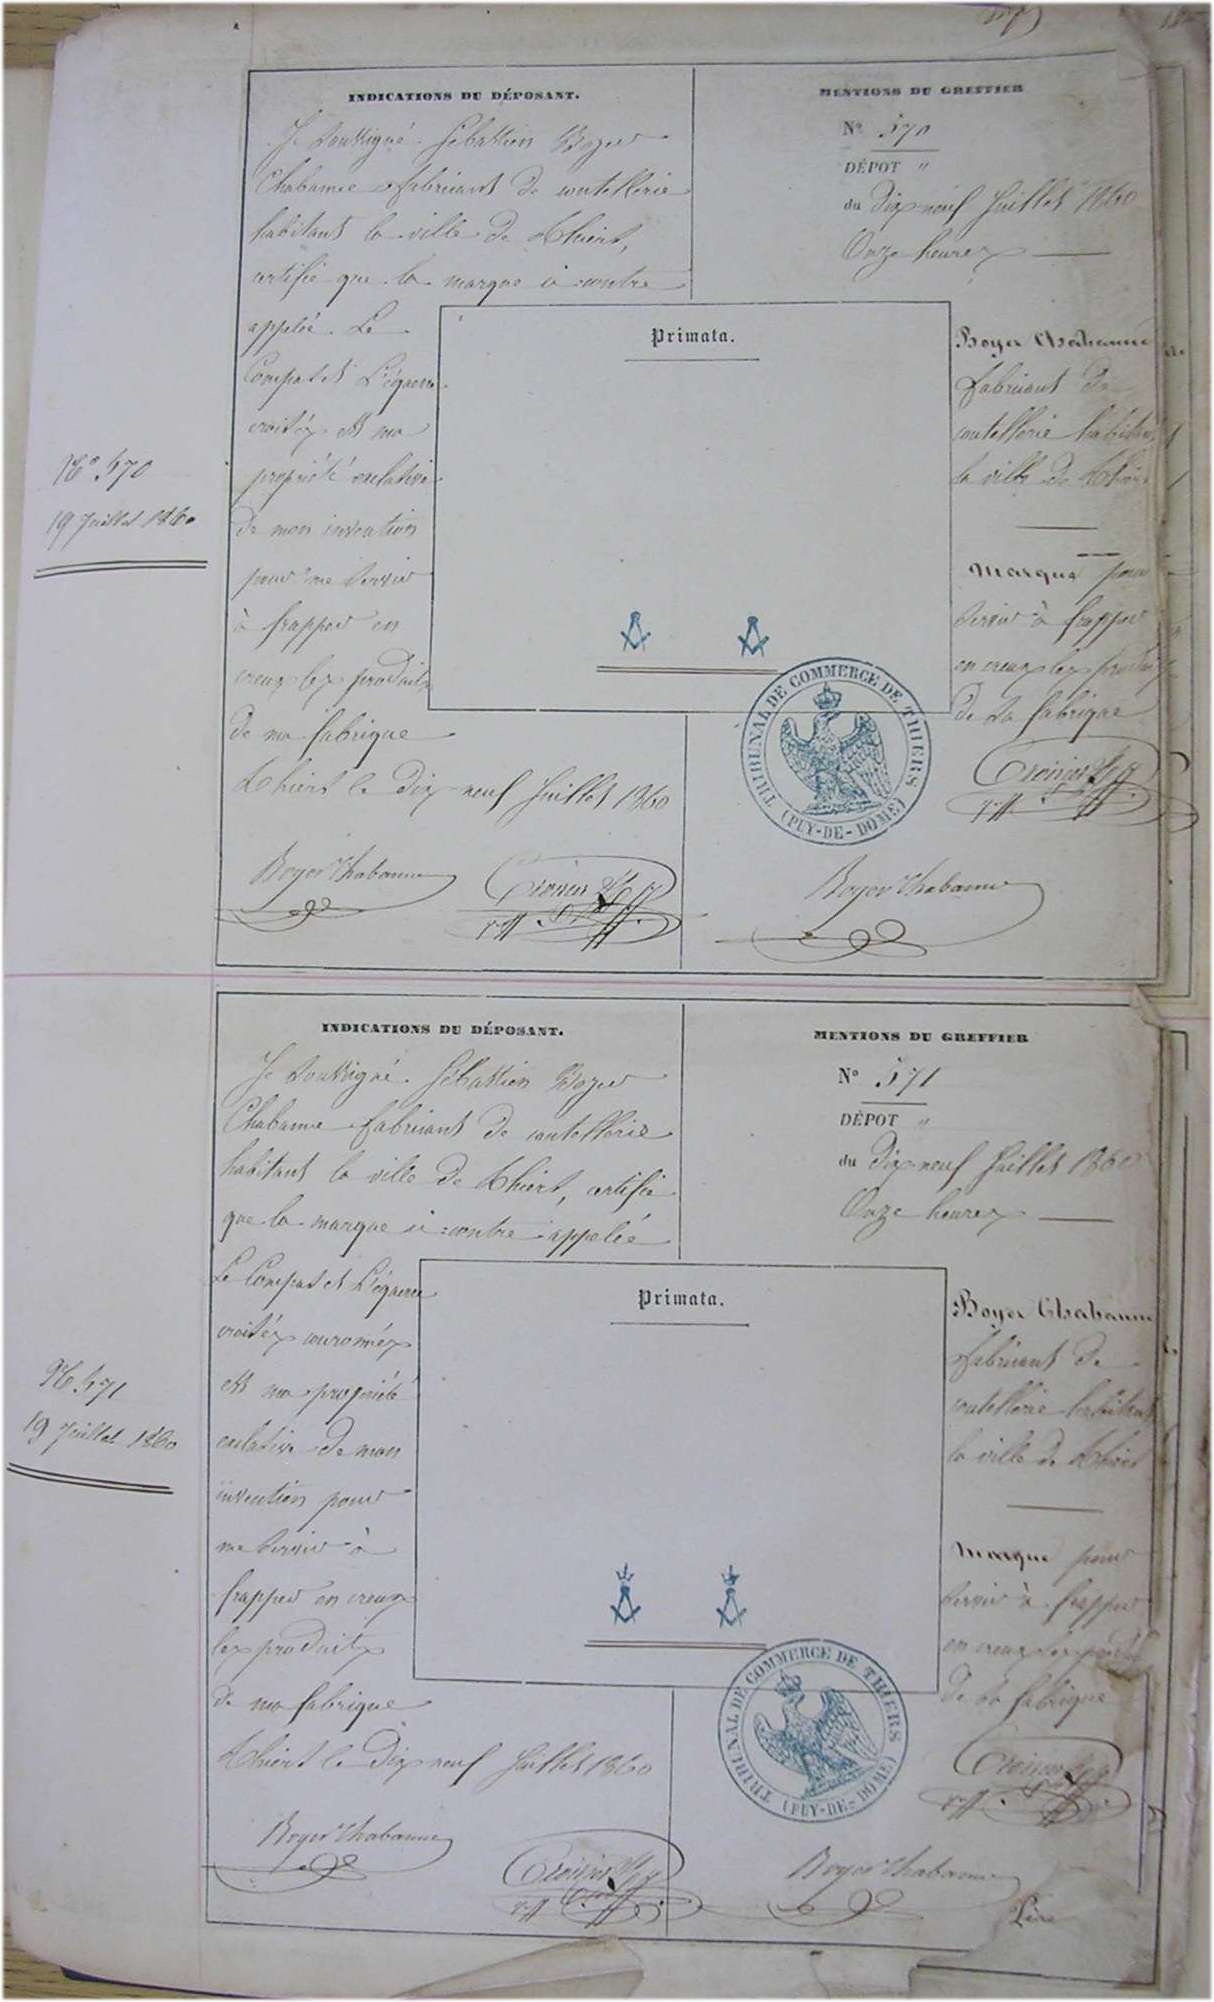 INDICATIONS DU DÉPOSANT.
Je soussigné Sébastien Boyer
Chabanne fabricant de coutellerie
habitant la ville de Thiers,
certifie que la marque ci-contre
appelée Le
Compas et L'équerre
croisés est ma
propriété exclusive
de mon invention
pour me servir
à frapper en
creux les produits
de ma fabrique
Thiers le dix neuf Juillet 1860
Boyer Chabanne
N° 570
19 Juillet 1860
Primata.
MENTIONS DU GREFFIER
N° 570
DÉPOT "
du dix neuf Juillet 1860
Onze heures
Boyer Chabanne
fabricant de
coutellerie habitant
la ville de Thiers
Marque pour
servir à frapper
en creux les produits
de sa fabrique
TRIBUNAL DE COMMERCE DE THIERS
(PUY-DE-DOME)
Boyer Chabanne
INDICATIONS DU DÉPOSANT.
Je soussigné Sébastien Boyer
Chabanne fabricant de coutellerie
habitant la ville de Thiers, certifie
que la marque ci-contre appelée
Le Compas et L'équerre
croisés couronnés
est ma propriété
exclusive de mon
invention pour
me servir à
frapper en creux
les produits
de ma fabrique
Thiers le dix neuf Juillet 1860
Boyer Chabanne
N° 571
19 Juillet 1860
Primata.
MENTIONS DU GREFFIER
N° 571
DÉPOT "
du dix neuf Juillet 1860
Onze heures
Boyer Chabanne
fabricant de
coutellerie habitant
la ville de Thiers
Marque pour
servir à frapper
en creux les produits
de sa fabrique
TRIBUNAL DE COMMERCE DE THIERS
(PUY-DE-DOME)
Boyer Chabanne